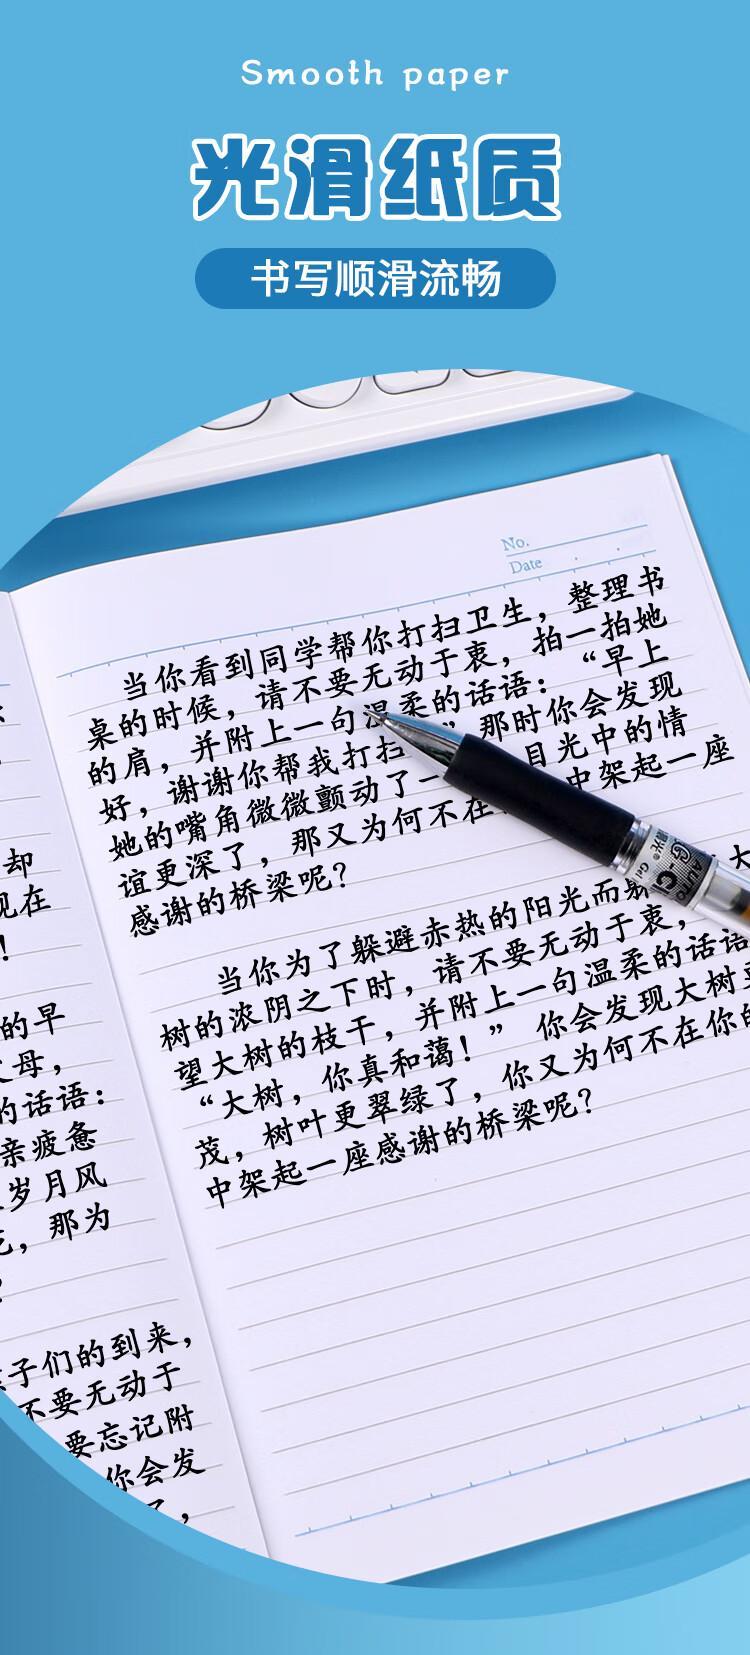 Smooth paper
光滑纸质
书写顺滑流畅
No.
Date
当你看到同学帮你打扫卫生，整理书
桌的时候，请不要无动于衷，拍一拍她
的肩，并附上一句温柔的话语：“早上
好，谢谢你帮我打扫”那时你会发现
她的嘴角微微颤动了一目光中的情
谊更深了，那又为何不在中架起一座
感谢的桥梁呢?
当你为了躲避赤热的阳光而躲大
树的浓阴之下时，请不要无动于衷，
望大树的枝干，并附上一句温柔的话语
“大树，你真和蔼！”你会发现大树更
茂，树叶更翠绿了，你又为何不在你的
中架起一座感谢的桥梁呢?
却
现在
！
的早
母，
的话语：
亲疲惫
岁月风
，那为
?
子们的到来，
不要无动于
要忘记附
你会发
了，